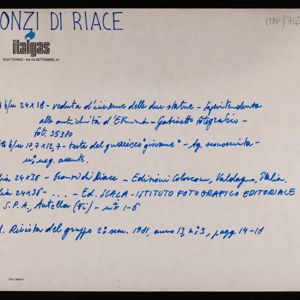 ONZI DI RIACE
ITAP/
italgas
10121 TORINO - VIA XX SETTEMBRE, 41
b/n 24x18 - veduta d'insieme delle due statue - Soprintendenza
alle antichità d'Etruria - Gabinetto fotografico -
fot. 35310
b/n 17,7x12,7 - testa del guerriero "giovane" - Ag. sconosciuta -
neg. assente.
24x36 - di Riace - Edizioni Colorcom, Valdagno, Italia
24x36 - ... - Ed. SCALA - ISTITUTO FOTOGRAFICO EDITORIALE
S.P.A, Antella (Fi) - nⁱ 1-6
. Rivista del gruppo 2° nov. 1981, anno 13, n° 3, pagg. 14-18